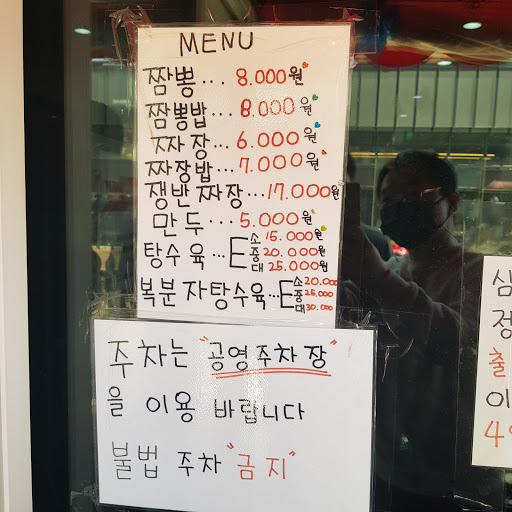 MENU
짬뽕... 8.000원
짬뽕밥... 8.000원
짜장... 6.000원
짜장밥... 7.000원
쟁반짜장...17.000원
만두... 5.000원
탕수육...
소 15.000원
중 20.000원
대 25.000원
복분자탕수육...
소 20.000
중 25.000
대 30.000
주차는 "공영주차장"
을 이용 바랍니다
불법 주차 "금지"
삼
정
출
이